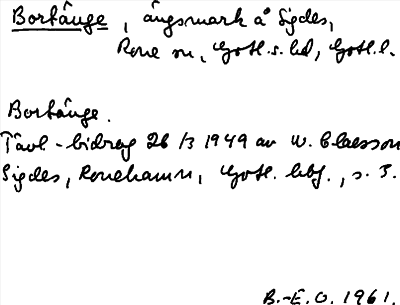 Bortänge, ängsmark å Sigdes,
Rone sn, Gotl. s. hd, Gotl. l.
Bortänge.
Tävl.-bidrag 26/3 1949 av W. Claesson
Sigdes, Ronehamn, Gotl. hbf., s. 3.
B.-E. O. 1961.